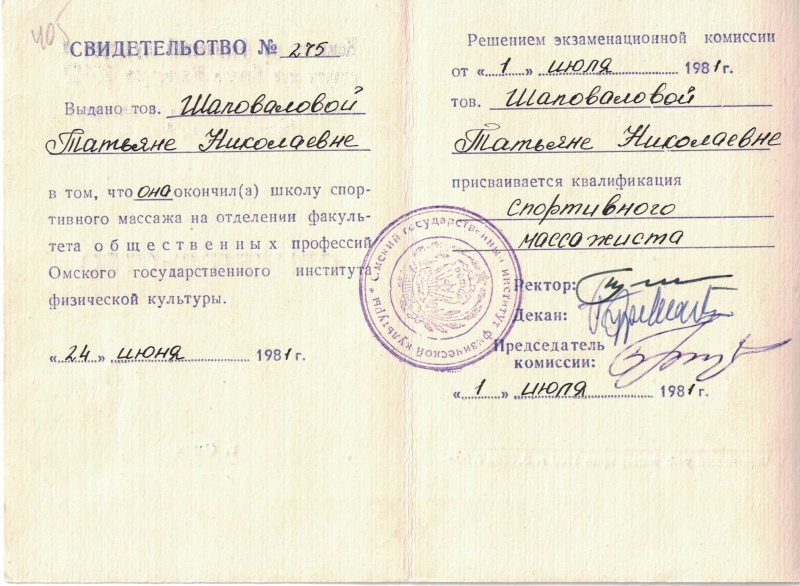 405
СВИДЕТЕЛЬСТВО № 275
Выдано тов. Шаповаловой
Татьяне Николаевне
в том, что она окончил(а) школу спор-
тивного массажа на отделении факуль-
тета общественных профессий
Омского государственного института
физической культуры.
«24» июня 1981г.
Решением экзаменационной комиссии
от «1» июля 1981г.
тов. Шаповаловой
Татьяне Николаевне
присваивается квалификация
спортивного
массажиста
Ректор:
Декан:
Председатель
комиссии:
«1» июля 1981г.
Омский государственный институт физической культуры